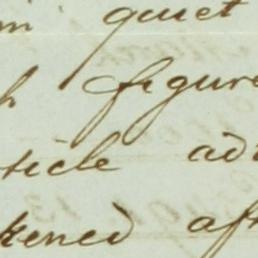 quiet
figure
ticle ad
kened aft